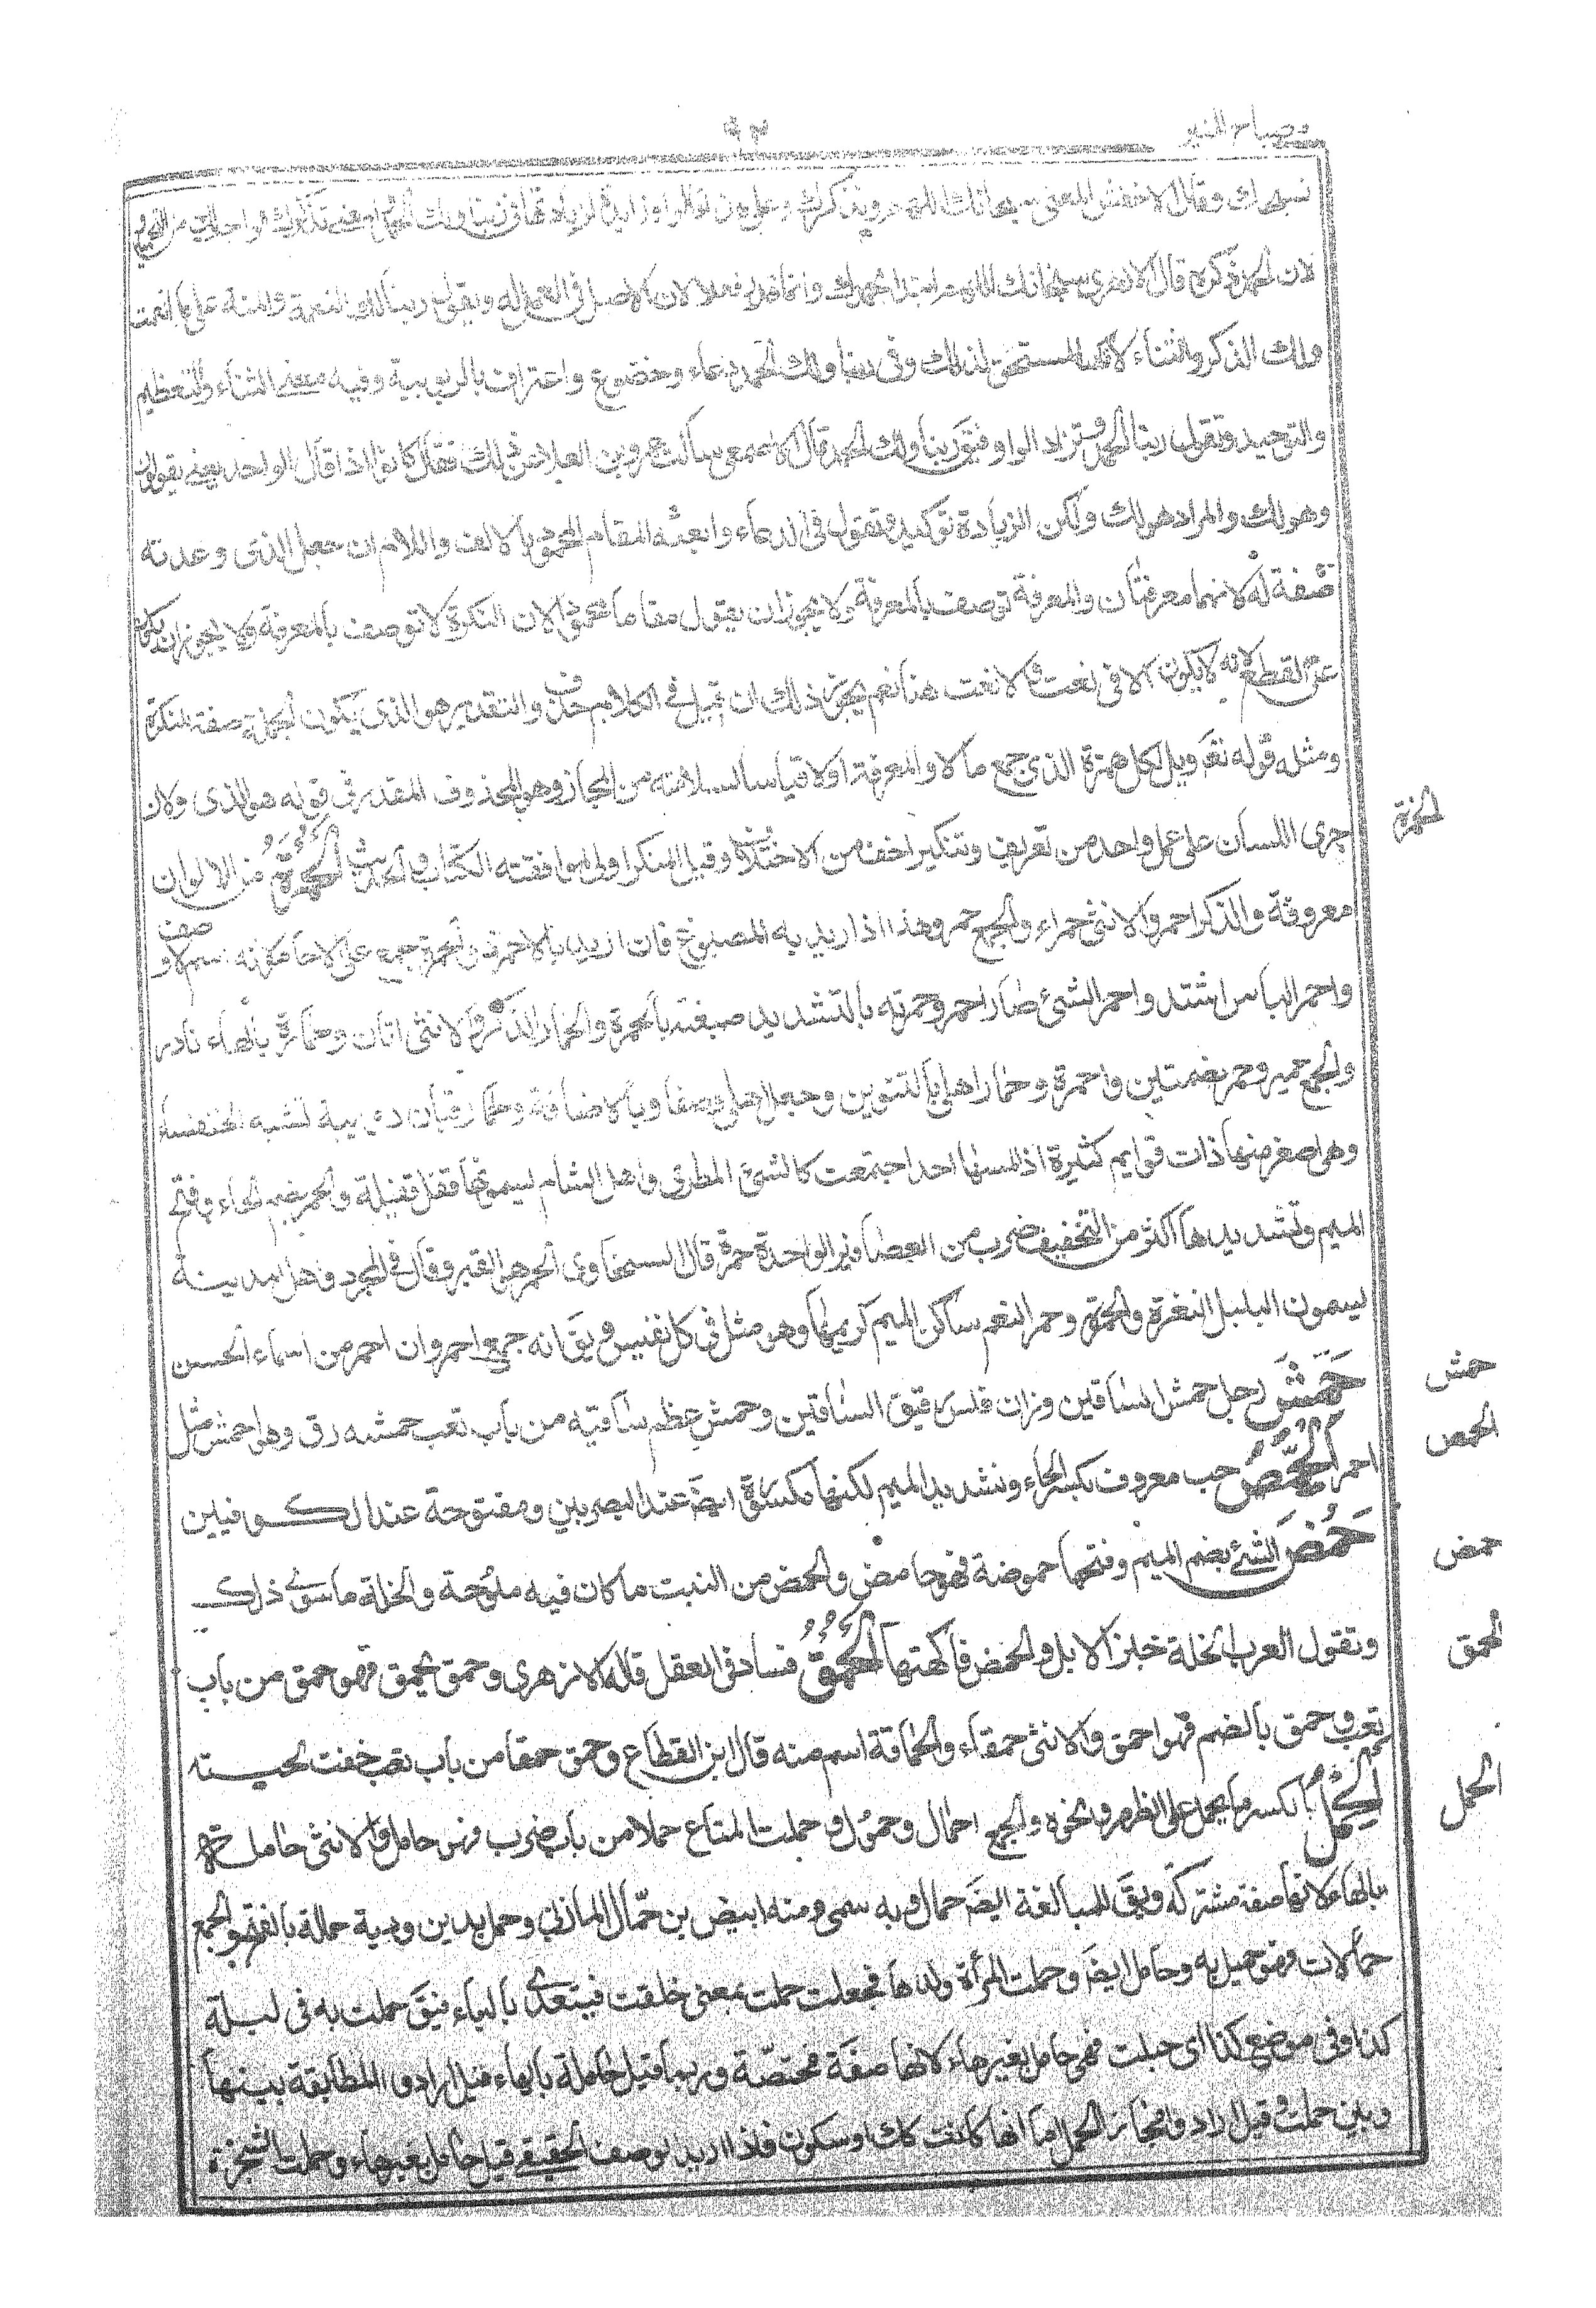 مصباح المنير
٩٣
نسبح لك وقال الاخفش المعنى سبحانك اللهم بذكرك وعلى هذا فالواو زايدة كزيادتها فى ربنا ولك الحمد
لان الحمد ذكر قال الازهرى سبحانك اللهم ابتدئ بحمدك وانما قدر فعلا لان الاصل فى العمل له وتقول ربنا لك الحمد اى لك المنة على ما انعمت
ولك الذكر والثناء لانك المستحق لذلك وفى ربنا ولك الحمد دعاء وخضوع واعتراف بالربوبية وفيه معنى الثناء والتعظيم
والتوحيد وتقول ربنا لك الحمد وتزاد الواو فيقَ ربنا ولك الحمد قال الاصمعى سالت ابا عمرو بن العلا عن ذلك فقال كانوا اذا قال الواحد بعنى يقولون
وهو لك والمراد هو لك ولكن الزيادة توكيد وتقول فى الدعاء وابعثه المقام المحمود بالالف واللام ان جعل الذى وعدته
صفة له لانهما معرفتان والمعرفة توصف بالمعرفة ولا يجوز ان يقول مقاما محمودا لان النكرة لا توصف بالمعرفة ولا يجوز ان يكون
على القطع لانه لا يكون الا فى نعت ولا نعت هنا نعم يجوز ذلك ان قيل فى الكلام حذف والتقدير هو الذى يكون الجملة صفة للنكرة
ومثله قوله تعَ ويل لكل همزة الذى جمع مالا والمعرفة اولا قياسا لسلامته من المجاز وهو المحذوف المقدر فى قوله هو الذى ولان
جرى اللسان على عمل واحد من تعريف وتنكير اخف من الاختلاف وقيل المنكر اولى لموافقته الكتاب والحديث الحُمْرَةُ من الالوان
الحمرة
معروفة والذكر احمر والانثى حمراء والجمع حمر وهذا اذا اريد به المصبوغ فان اريد بالاحمر ذو الحمرة جمع على الاحامر لانه اسم لا وصف
واحمر الباس اشتد واحمر الشئ صار احمر وحمرته بالتشديد صبغته بالحمرة والحمار الذكر والانثى اتان وحمارة بالهاء نادر
والجمع حمير وحمر بضمتين واحمرة وحمار اهلى بالتنوين وجعل اهلى وصفا وبالاضافة وحمار قبان دويبة تشبه الخنفساء
وهى اصغر منها ذات قوايم كثيرة اذا لمسها احد اجتمعت كالشئ المطوى واهل الشام يسمونها قفل قفيلة والحمر بضم الحاء وفتح
الميم وتشديدها اكثر من التخفيف ضرب من العصافير الواحدة حمرة قال السخاوى الحمر هو القبر وقال فى المجرد واهل المدينة
يسمون البلبل النغرة والحمرة وحمر النعم ساكن الميم كريمها وهو مثل فى كل نفيس ويقَ انه جمع احمر وان احمر من اسماء الحسن
حَمْشَ رجل حمش الساقين وزان فلس دقيق الساقين وحمش عظم ساقيه من باب تعب حمشه رق وهو احمش مثل
حمش
احمر الحِمِّصُ حب معروف بكسر الحاء وتشديد الميم لكنها مكسورة ايضَ عند البصريين ومفتوحة عند الكوفيين
الحمص
حَمُضَ الشئ بضم الميم وفتحها حموضة فهو حامض والحمض من النبت ما كان فيه ملوحة والخلة ما سوى ذلك
حمض
وتقول العرب الخلة خبز الابل والحمض فاكهتها الحُمْقُ فساد فى العقل قاله الازهرى وحمق يحمق فهو حمق من باب
الحمق
تعب وحمق بالضم فهو احمق والانثى حمقاء والحماقة اسم منه قال ابن القطاع وحمق حمقا من باب تعب خفت لحيته
الحِمْلُ بالكسر ما يحمل على الظهر ونحوه والجمع احمال وحمول وحملت المتاع حملا من باب ضرب فهو حامل والانثى حاملة
الحمل
بالهاء لانها صفة مشتركة ويقَ للمبالغة ايضَ حمال وبه سمى ومنه ابيض بن حمّال المازنى وحمل بدين ودية حمالة بالفتح والجمع
حمالات فهو حميل به وحامل ايضَ وحملت المرأة ولدها فجعلت حملت بمعنى علقت فيتعدى بالباء فيقَ حملت به فى ليلة
كذا وفى موضع كذا اى حبلت فهى حامل بغير هاء لانها صفة مختصّة وربما قيل حاملة بالهاء قيل ارادوا المطابقة بينها
وبين حملت وقيل ارادوا مجاز الحمل اما انها كانت كك او سكون فاذا اريد الوصف الحقيقى قيل حامل بغير هاء وحملت الشجرة